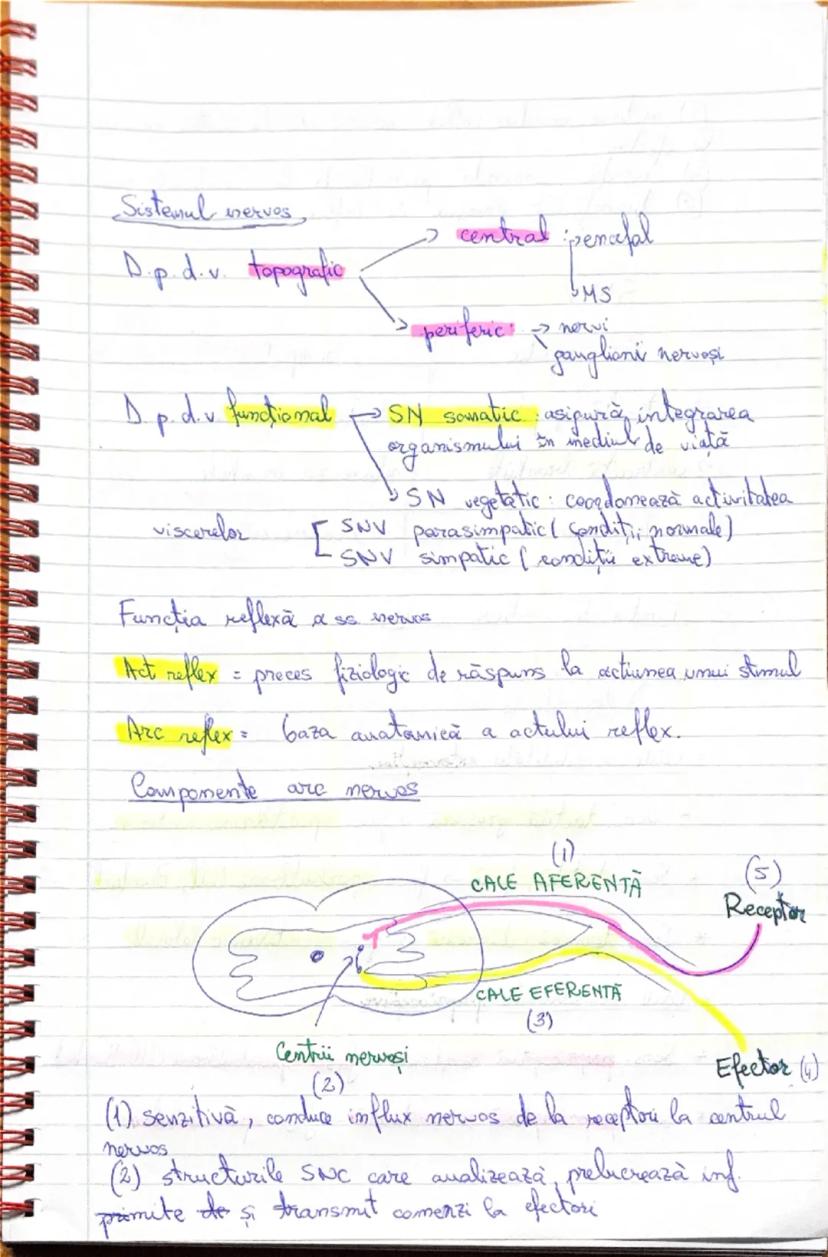 Sistemul nervos
D.p.d.v. topografic → central : encefal
↳ MS
→ periferic: → nervi
ganglioni nervoși
D.p.d.v funcțional → SN somatic : asigură integrarea
organismului în mediul de viață
↳ SN vegetatic: coordonează activitatea
viscerelor [ SNV parasimpatic (condiții normale)
SNV simpatic (condiții extreme)
Funcția reflexă a ss nervos
Act reflex = proces fiziologic de răspuns la acțiunea unui stimul
Arc reflex = baza anatomică a actului reflex.
Componente arc nervos
(1)
CALE AFERENTĂ
(5)
Receptor
CALE EFERENTĂ
(3)
Centrii nervoși
(2)
Efector (4)
(1) senzitivă, conduce influx nervos de la receptori la centrul
nervos
(2) structurile SNC care analizează, prelucrează inf.
primite de și transmit comenzi la efectori